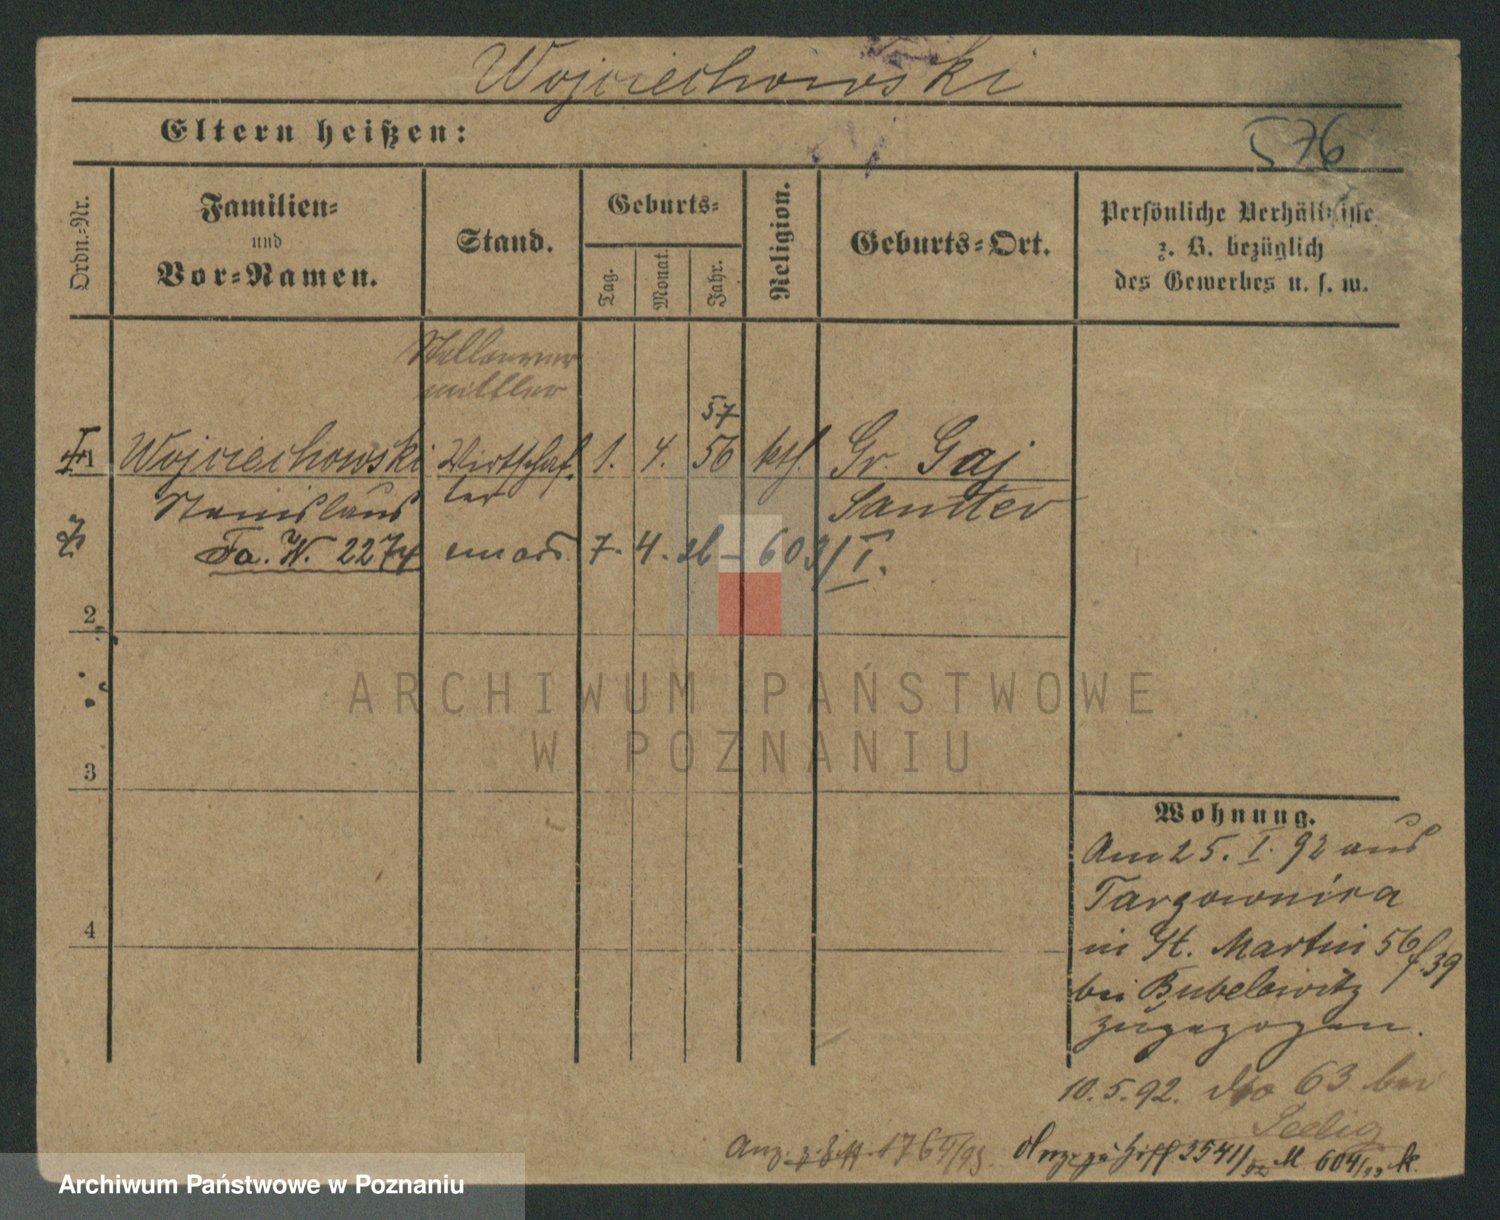 Wojciechowski
Eltern heißen:
576
Ordn.-Nr.
Familien-
und
Vor-Namen.
Stand.
Geburts-
Tag.
Monat.
Jahr.
Religion.
Geburts-Ort.
Persönliche Verhältnisse
z. B. bezüglich
des Gewerbes u. s. w.
Stellenver
mittler
57
1 Wojciechowski Wirtschaf- 1. 4. 56 kth. Gr. Gaj
Stanislaus ter Samter
Fa. W. 2274 7. 4. 603/I.
2
3
4
ARCHIWUM PAŃSTWOWE
W POZNANIU
Wohnung.
Am 25. I. 92 aus
Targownica
in St. Martin 56 f. 39
bei Bubelewitz
zugezogen.
10.5.92. dto 63 bei
Selig
Anz. z. Ziff. 1764/93 Anz. zu Ziff 2541/92 M 604/93 k.
Archiwum Państwowe w Poznaniu